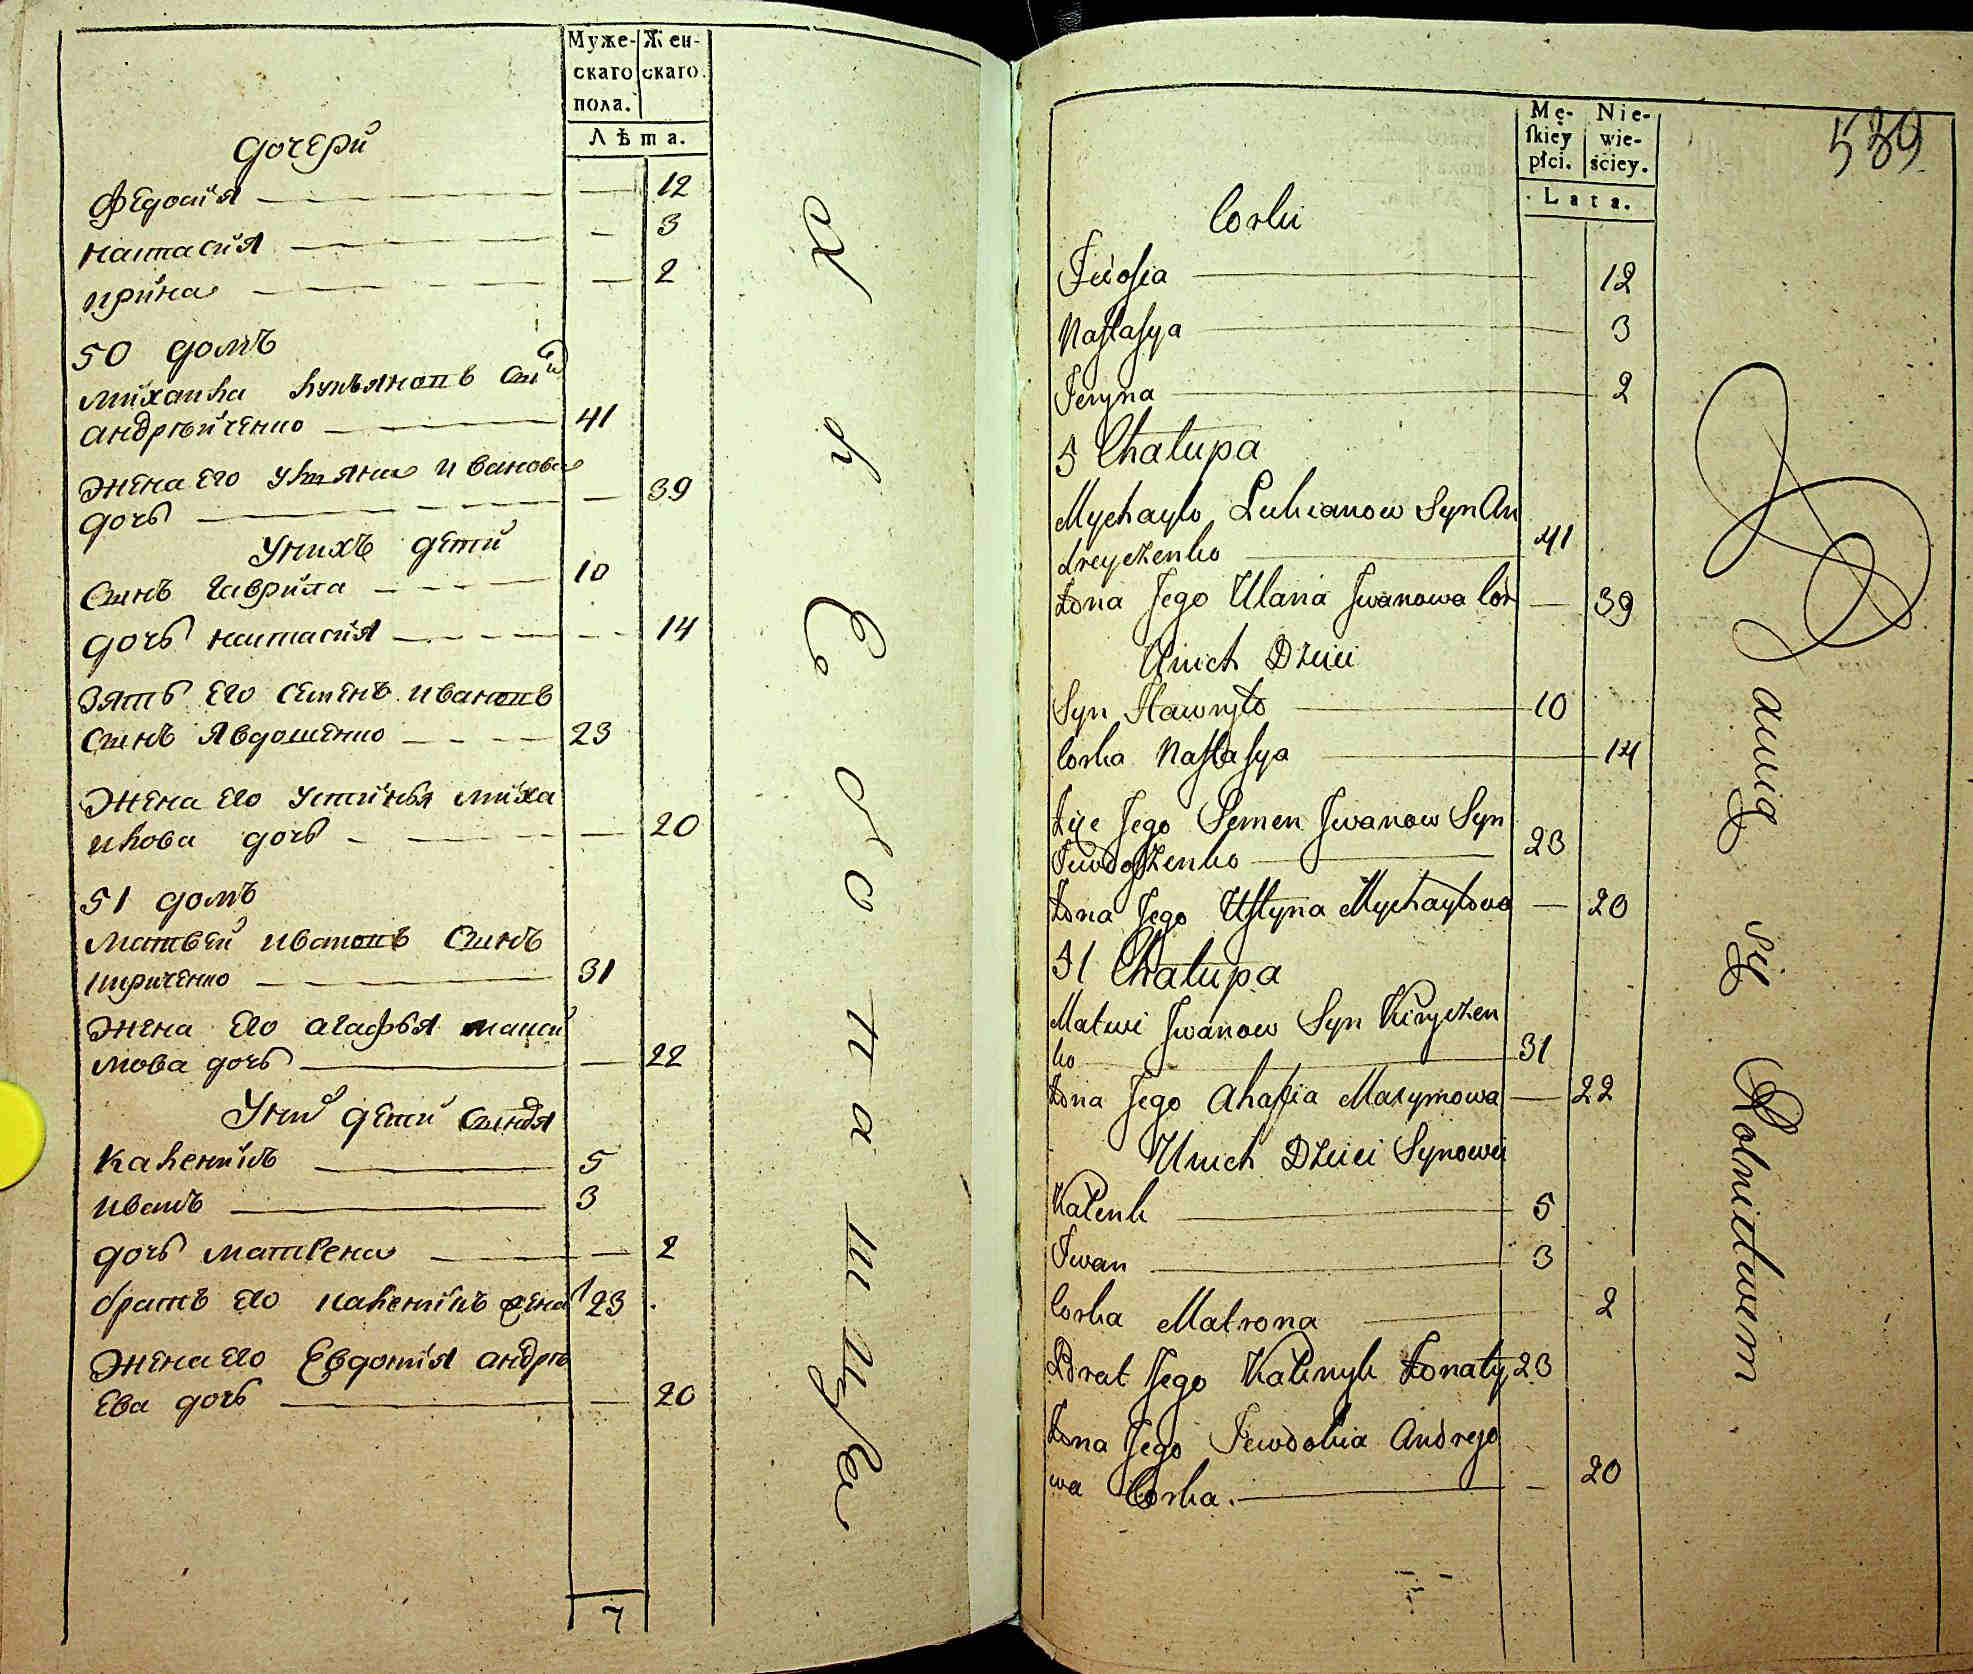 Муже- Жен-
скаго скаго.
пола.
Лѣта.
дочери
Федосия — 12
настасия — 3
ирина — 2
50 домъ
михаила лукъяновъ син
андрѣйченко — 41
жена его уляна иванова
дочь — 39
У нихъ дети
синъ гаврила — 10
дочь настасия — 14
зять его семенъ ивановъ
синъ явдошенко — 23
жена его устинья миха
илова дочь — 20
51 домъ
матвей ивановъ синъ
кириченко — 31
жена его агафья макси
мова дочь — 22
У ни дети синовя
каленикъ — 5
иванъ — 3
дочь матрена — 2
братъ его каленикъ жена 23
жена его Евдокия андрѣ
ева дочь — 20
7
Mę- Nie-
skiey wie-
płci. ściey.
Lata.
539
Corki
Fedosia — 12
Nastasya — 3
Jeryna — 2
5 Chałupa
Mychayło Lukianow Syn An
dreyczenko — 41
żona Jego Ulana Jwanowa Cor — 39
Unich Dzieci
Syn Hawryło — 10
Corka Nastasya — 14
Zięc Jego Semen Jwanow Syn
Jewdoszenko — 23
żona Jego Ustyna Mychayłowa — 20
51 Chałupa
Matwi Jwanow Syn Kiryczen
ko — 31
żona Jego Ahafia Maxymowa — 22
Unich Dzieci Synowie
Kalenik — 5
Jwan — 3
Corka Matrona — 2
Brat Jego Kalinyk żonaty 23
żona Jego Jewdokia Andrejo
wa Corka. — 20
Bawią się Rolnictwem